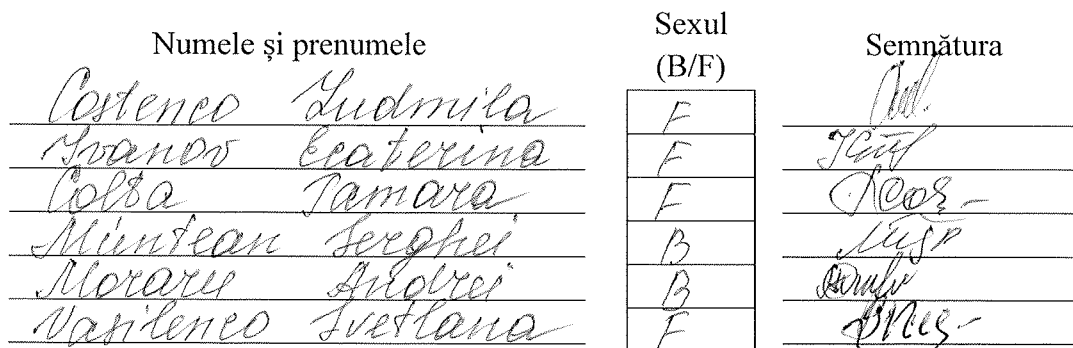 Numele și prenumele Sexul (B/F) Semnătura
Costenco Ludmila F
Ivanov Ecaterina F
Colța Tamara F
Muntean Serghei B
Moraru Andrei B
Vasilenco Svetlana F